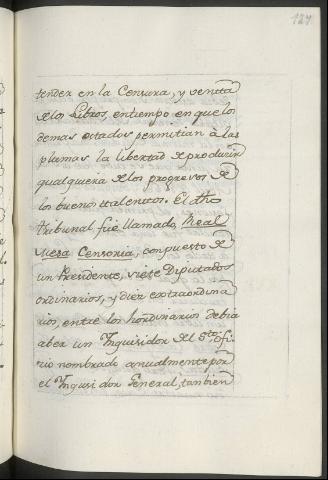 127.
tender en la Censura, y venita
delos Libros, entiempo en que lo
demas estados permitian à las
plumas la libertad de producir
qualquiera delos progresos de
los buenos ttalentos. El dho
tribunal fué llamado, Real
Mesa Censoria, conpuesto de
un Presidente, siete Diputados
ordinarios, y diez extraordina
rios, entre los hordinarios debia
aber un Ynquisidor del Sto. Ofi
cio nombrado anualmente por
el Ynqusidor General, tanbien